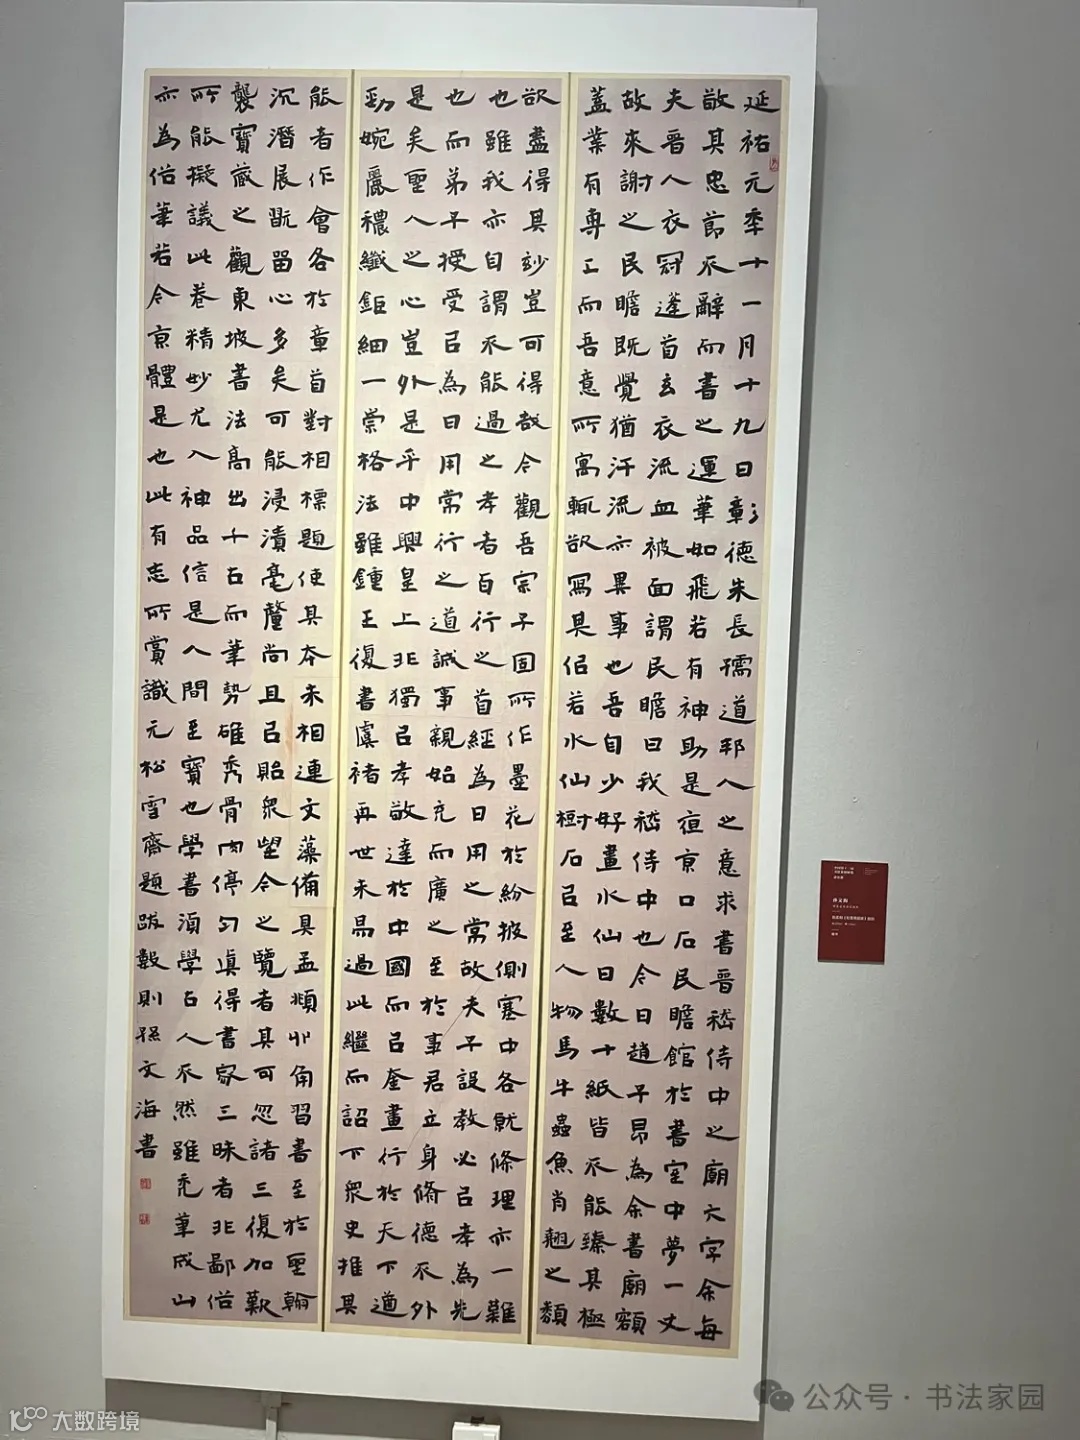 延祐元年十一月十九日彰德朱長孺道邦人之意求書晉嵇侍中之廟大字余每
敬其忠節不辭而書之運筆如飛若有神助是夜京口石民瞻館於書室中夢一丈
夫晉人衣冠蓬首玄衣流血被面謂民瞻曰我嵇侍中也今日趙子昂為余書廟額
故來謝之民瞻既覺猶汗流亦異事也吾自少好畫水仙日數十紙皆不能臻其極
蓋業有專工而吾意所寓輒欲寫其侣若水仙樹石㠯至人物馬牛蟲魚肖翹之類
欲盡得其妙豈可得哉今觀吾宗子固所作墨花於紛披側塞中各就條理亦一難
也雖我亦自謂不能過之孝者百行之首經為日用之常故夫子設教必㠯孝為先
也而弟子授受㠯為日用常行之道誠事親始充而廣之至於事君立身脩德不外
是矣聖人之心豈外是乎中興皇上非獨㠯孝敬達於中國而㠯奎畫行於天下遒
勁婉麗穠纖鉅細一崇格法雖鍾王復書虞褚再世未易過此繼而詔下眾史推其
能者作會各於章首對相標題使其本末相連文藻備具孟頫丱角習書至於聖翰
沉潛展翫留心多矣可能浸漬毫釐尚且㠯貽眾望今之覽者其可忽諸三復加歎
襲寶藏之觀東坡書法高出千古而筆勢雄秀骨肉停勻真得書家三昧者非鄙俗
所能擬議此卷精妙尤入神品信是人間至寶也學書須學古人不然雖禿筆成山
亦為俗筆若今京體是也此有志所賞識元松雪齋題跋數則孫文海書
公众号·书法家园
大数跨境